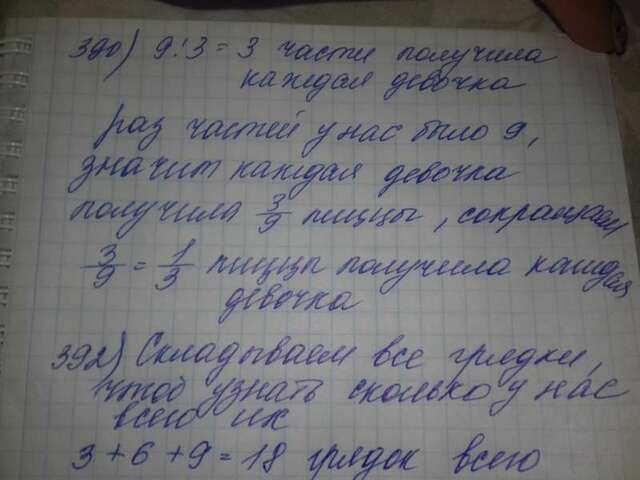 390) 9:3=3 части получила
каждая девочка
раз частей у нас было 9,
значит каждая девочка
получила 3/9 пиццы, сокращаем
3/9 = 1/3 пиццы получила каждая
девочка
392) Складываем все грядки,
чтоб узнать сколько у нас
всего их
3+6+9=18 грядок всего